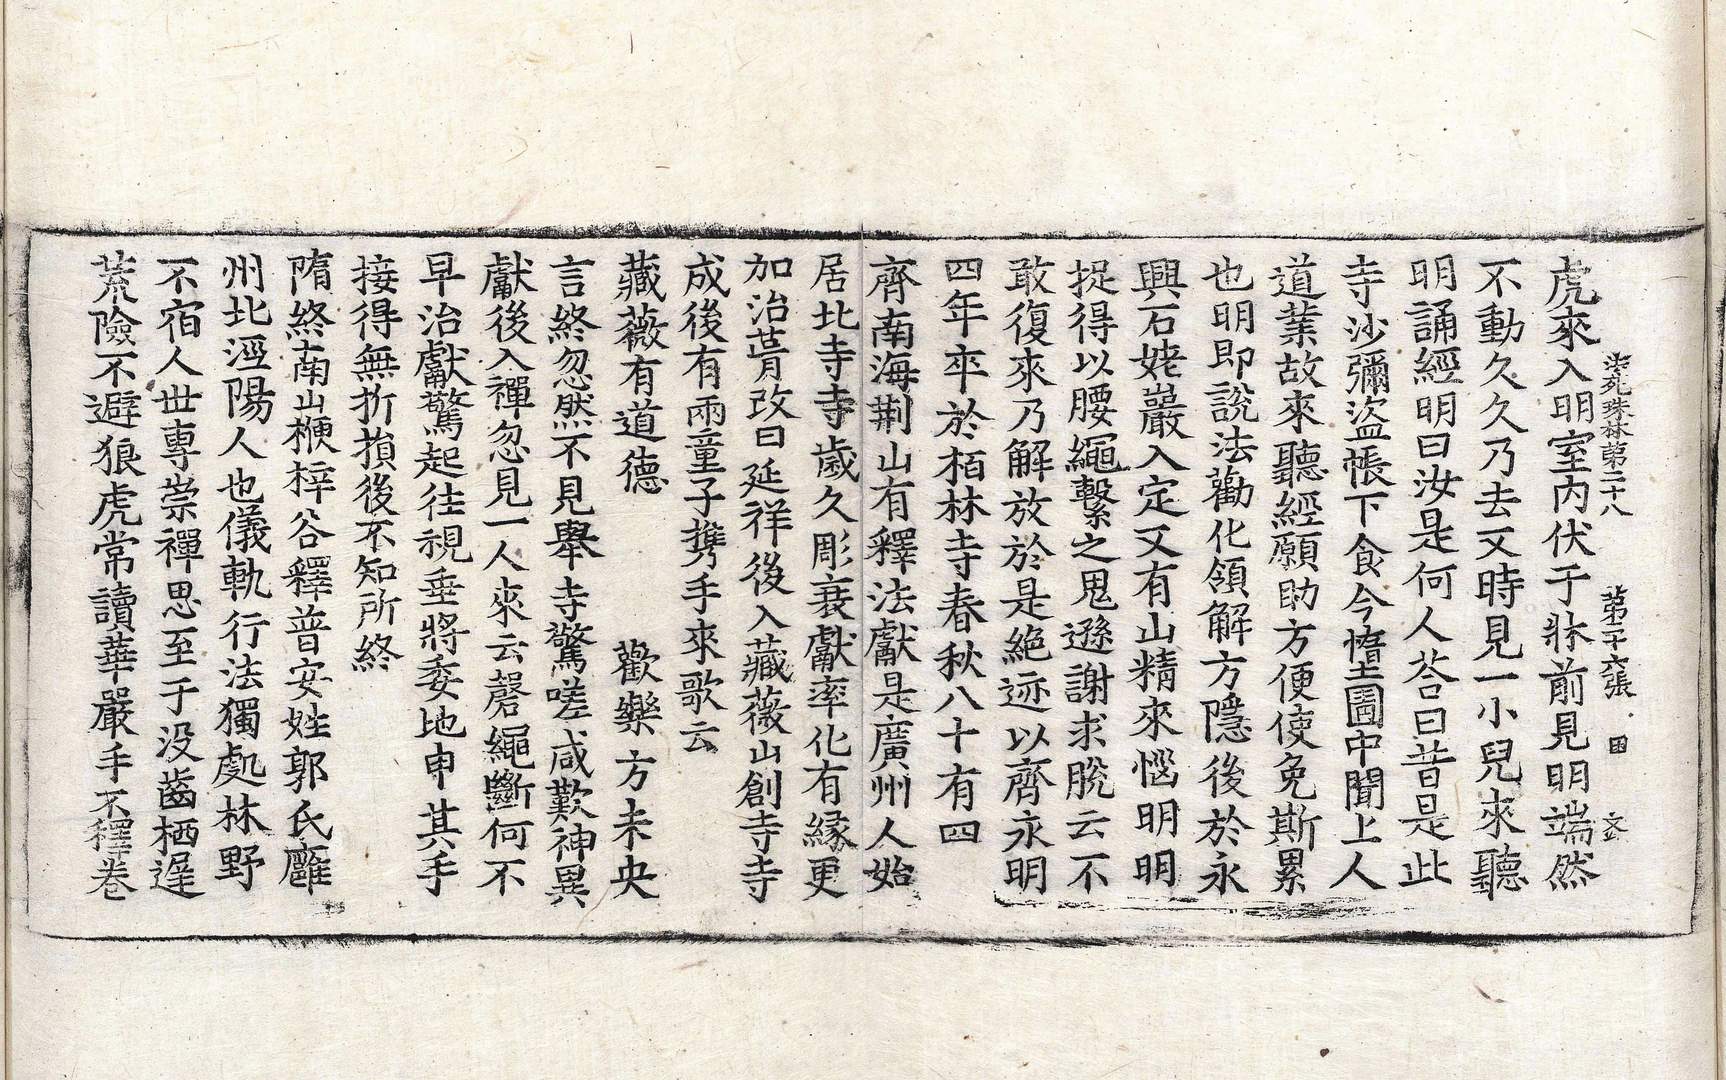 法苑珠林第二十八 第二十六張 田 文金
虎來入明室內伏于牀前見明端然
不動久久乃去又時見一小兒來聽
明誦經明曰汝是何人荅曰昔是此
寺沙彌盜帳下食今墮圊中聞上人
道業故來聽經願助方便使免斯累
也明即說法勸化領解方隱後於永
興石姥巖入定又有山精來惱明明
捉得以腰繩繫之鬼遜謝求脫云不
敢復來乃解放於是絕迹以齊永明
四年卒於栢林寺春秋八十有四
齊南海荊山有釋法獻是廣州人始
居北寺寺歲久彫衰獻率化有緣更
加治葺改曰延祥後入藏薇山創寺寺
成後有兩童子携手來歌云
藏薇有道德 歡樂方未央
言終忽然不見舉寺驚嗟咸歎神異
獻後入禪忽見一人來云磬繩斷何不
早治獻驚起往視垂將委地申其手
接得無折損後不知所終
隋終南山楩梓谷釋普安姓郭氏雝
州北涇陽人也儀軌行法獨處林野
不宿人世專崇禪思至于没齒栖遲
荒險不避狼虎常讀華嚴手不釋卷